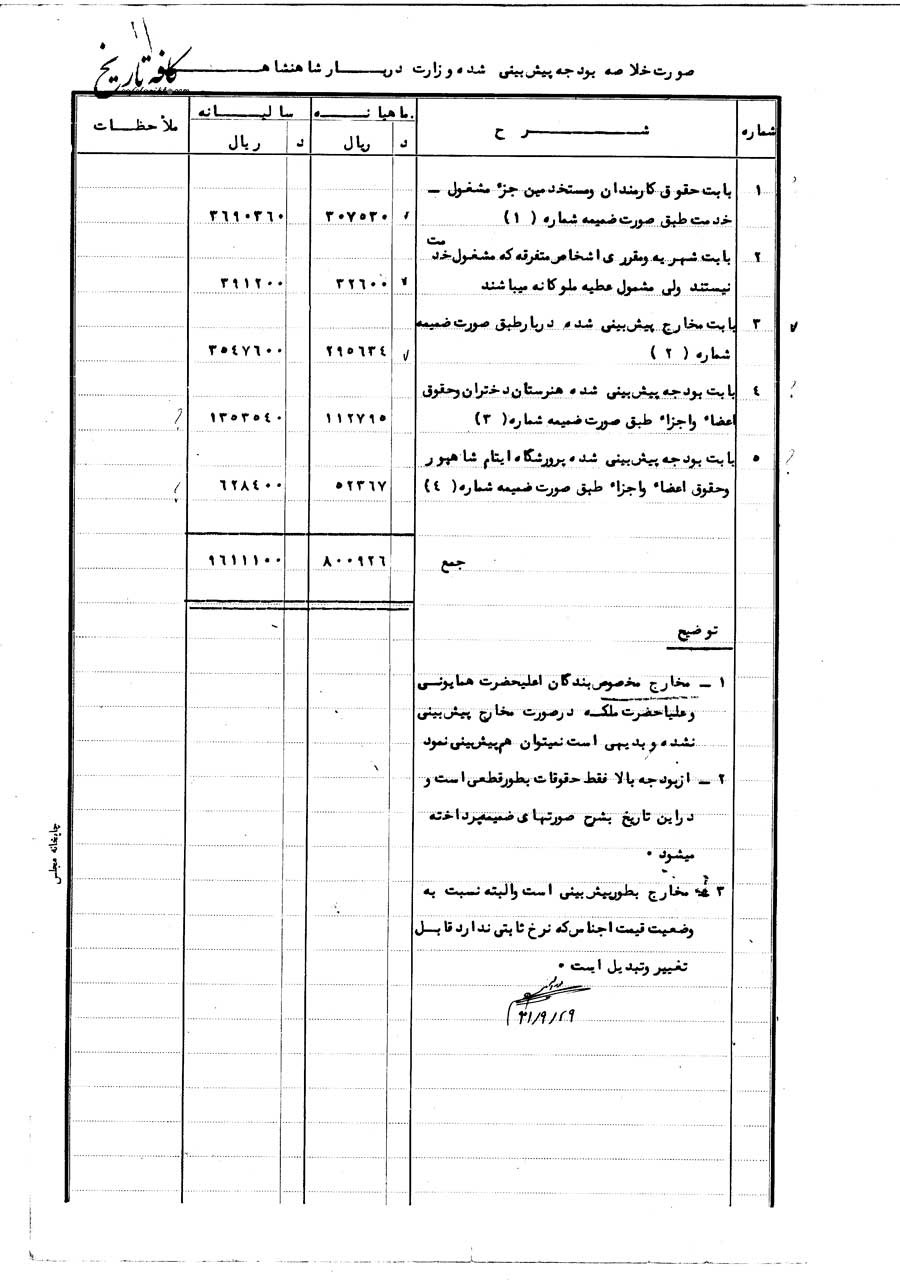 کافه تاریخ
صورت خلاصه بودجه پیش بینی شده وزارت دربار شاهنشاهی
شماره شرح ماهیانه سالیانه ملاحظات
د ریال د ریال
۱ بابت حقوق کارمندان ومستخدمین جزء مشغول ـ
خدمت طبق صورت ضمیمه شماره ( ۱ ) ۳۰۷۵۳۰ ۳٦۹۰۳٦۰
۲ بابت شهریه ومقرری اشخاص متفرقه که مشغول خدمت
نیستند ولی مشمول عطیه ملوکانه میباشند ۳۲٦۰۰ ۳۹۱۲۰۰
۳ بابت مخارج پیش بینی شده دربارطبق صورت ضمیمه
شماره ( ۲ ) ۲۹۵٦۳٤ ۳۵٤۷٦۰۰
٤ بابت بودجه پیش بینی شده هنرستان دختران وحقوق
اعضاء واجزاء طبق صورت ضمیمه شماره( ۳ ) ۱۱۲۷۹۵ ۱۳۵۳۵٤۰
۵ بابت بودجه پیش بینی شده پرورشگاه ایتام شاهپور
وحقوق اعضاء واجزاء طبق صورت ضمیمه شماره( ٤ ) ۵۲۳٦۷ ٦۲۸٤۰۰
جمع ۸۰۰۹۲٦ ۹٦۱۱۱۰۰
توضیح
۱ ـ مخارج مخصوص بندگان اعلیحضرت همایونی
وعلیاحضرت ملکه درصورت مخارج پیش بینی
نشده وبدیهی است نمیتوان هم پیش بینی نمود
۲ ـ ازبودجه بالا فقط حقوقات بطورقطعی است و
دراین تاریخ بشرح صورتهای ضمیمه پرداخته
میشود ۰
۳ مخارج بطورپیش بینی است والبته نسبت به
وضعیت قیمت اجناس که نرخ ثابتی ندارد قابل
تغییر وتبدیل است ۰
۲۱/۹/۲۹
چاپخانه مجلس